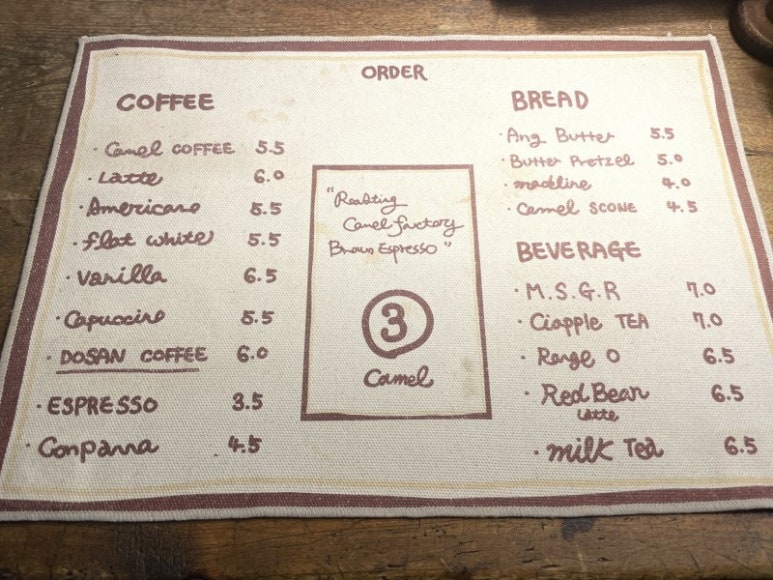 ORDER
COFFEE
· Camel COFFEE 5.5
· Latte 6.0
· Americano 5.5
· flat white 5.5
· Vanilla 6.5
· Capuccino 5.5
· DOSAN COFFEE 6.0
· ESPRESSO 3.5
· Conpanna 4.5
"Roasting
Camel factory
Brown Espresso"
3
Camel
BREAD
· Ang Butter 5.5
· Butter Pretzel 5.0
· madeline 4.0
· Camel SCONE 4.5
BEVERAGE
· M.S.G.R 7.0
· Ciapple TEA 7.0
· Range O 6.5
· Red Bean 6.5
Latte
· milk Tea 6.5